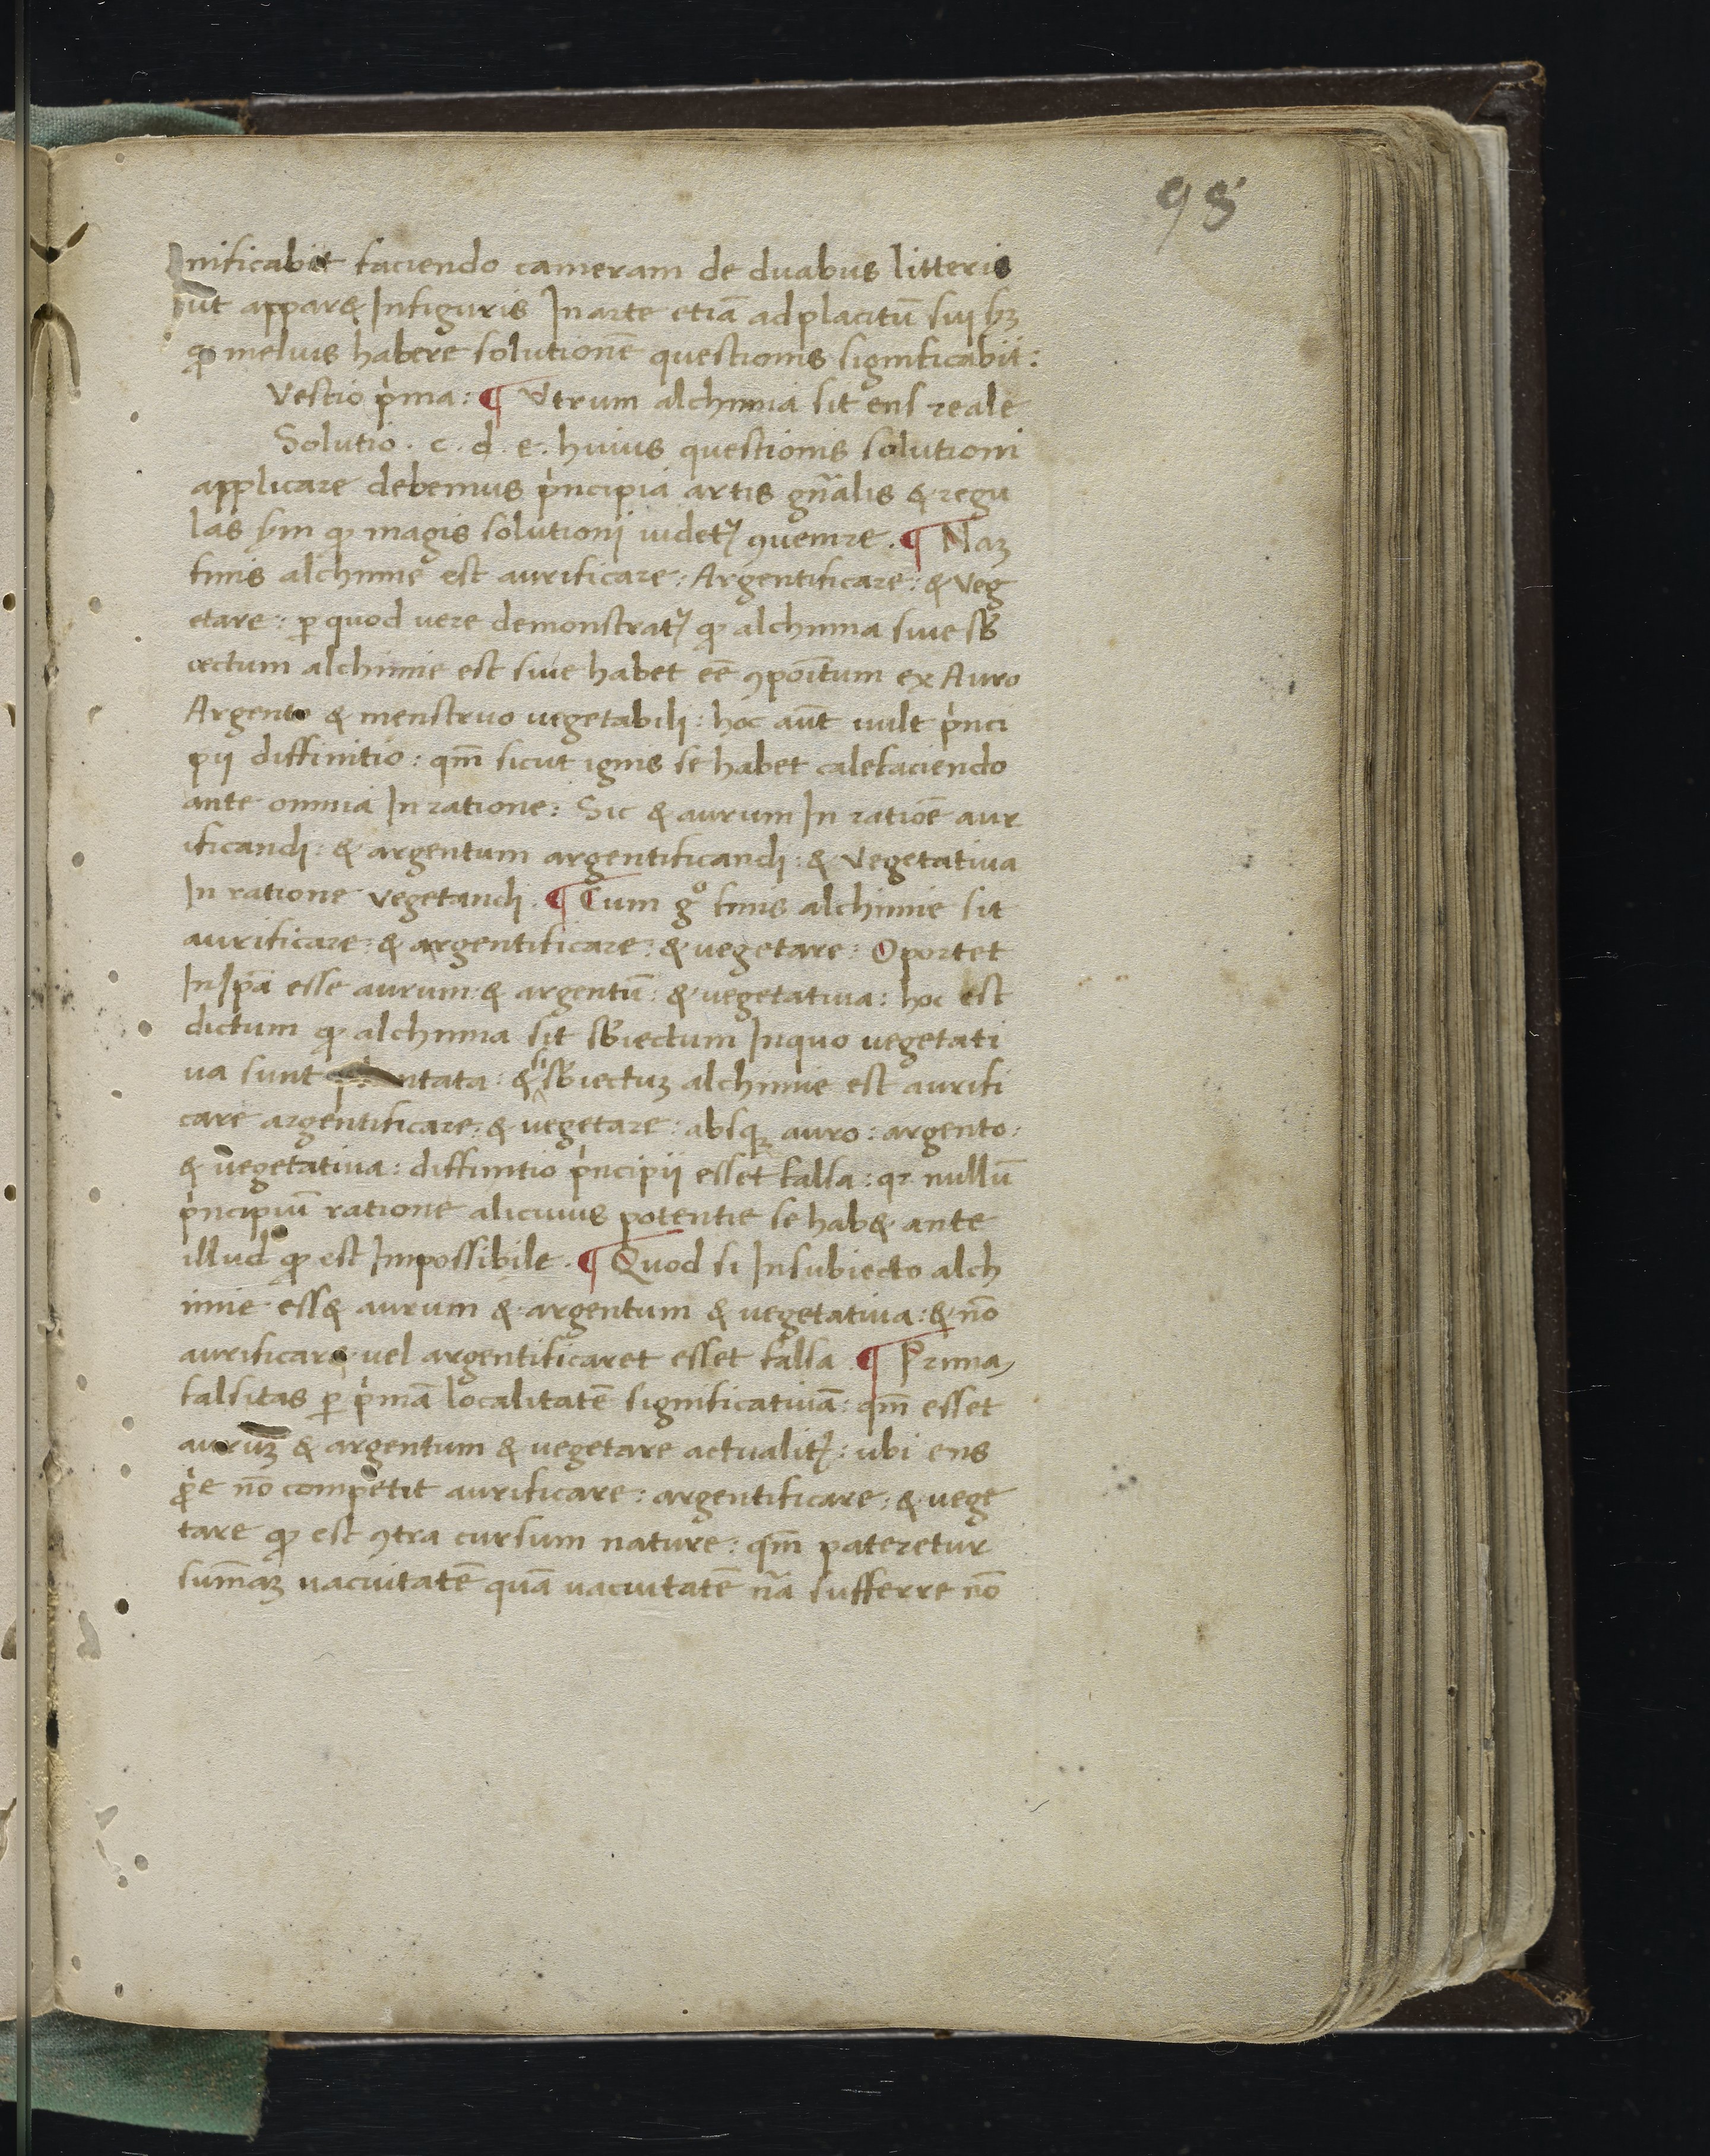 98
nificabit faciendo cameram de duabus litteris
ut appar& Infiguris In arte etiā ad placitū sui sꝫ
ꝙ meluis habere solutionē questionis significabit:
Vestio p̍ma: ¶ Vtrum alchimia sit ens reale
Solutio. c. d. e. huius questionis solutioni
applicare debemus p̍ncipia artis gn̄alis & regu
las sm ꝙ magis solutioni uidetᷣ ꝯuenire. ¶ Naꝫ
finis alchimie est aurificare: Argentificare: & veg
etare: ꝑ quod uere demonstratᷣ ꝙ alchimia siue sb̄
iectum alchimie est siue habet eē ꝯpoītum ex Auro
Argento & menstruo uegetabili: hoc aūt uult p̍nci
pii diffinitio: qm̄ sicut ignis se habet calefaciendo
ante omnia In ratione: Sic & aurum In ratiōe aur
ificandi: & argentum argentificandi: & vegetatiua
In ratione vegetandi. ¶ Cum gͦ finis alchimie sit
aurificare: & argentificare: & uegetare: Oportet
In ip̄a esse aurum & argentū: & uegetatiua: hoc est
dictum ꝙ alchimia sit sb̄iectum Inquo uegetati
ua sunt ntata: & si sb̄iectuꝫ alchimie est aurifi
care argentificare: & uegetare: absqꝫ auro: argento:
& uegetatiua: diffinitio p̍ncipii esset falsa: qꝛ nullū
p̍ncipiū ratione alicuius potentie se hab& ante
illud ꝙ est Impossibile. ¶ Quod si Insubiecto alch
imie ess& aurum & argentum & uegetatiua: & nō
aurificar& uel argentificaret esset falsa ¶ Prima
falsitas ꝑ p̍mā localitatē significatiuā: qm̄ esset
auruꝫ & argentum & uegetare actualitᷣ: ubi ens
p̍e nō competit aurificare: argentificare: & uege
tare ꝙ est ꝯtra cursum nature: qm̄ pateretur
sum̄aꝫ uacuitatē quā uacuitatē nā sufferre nō